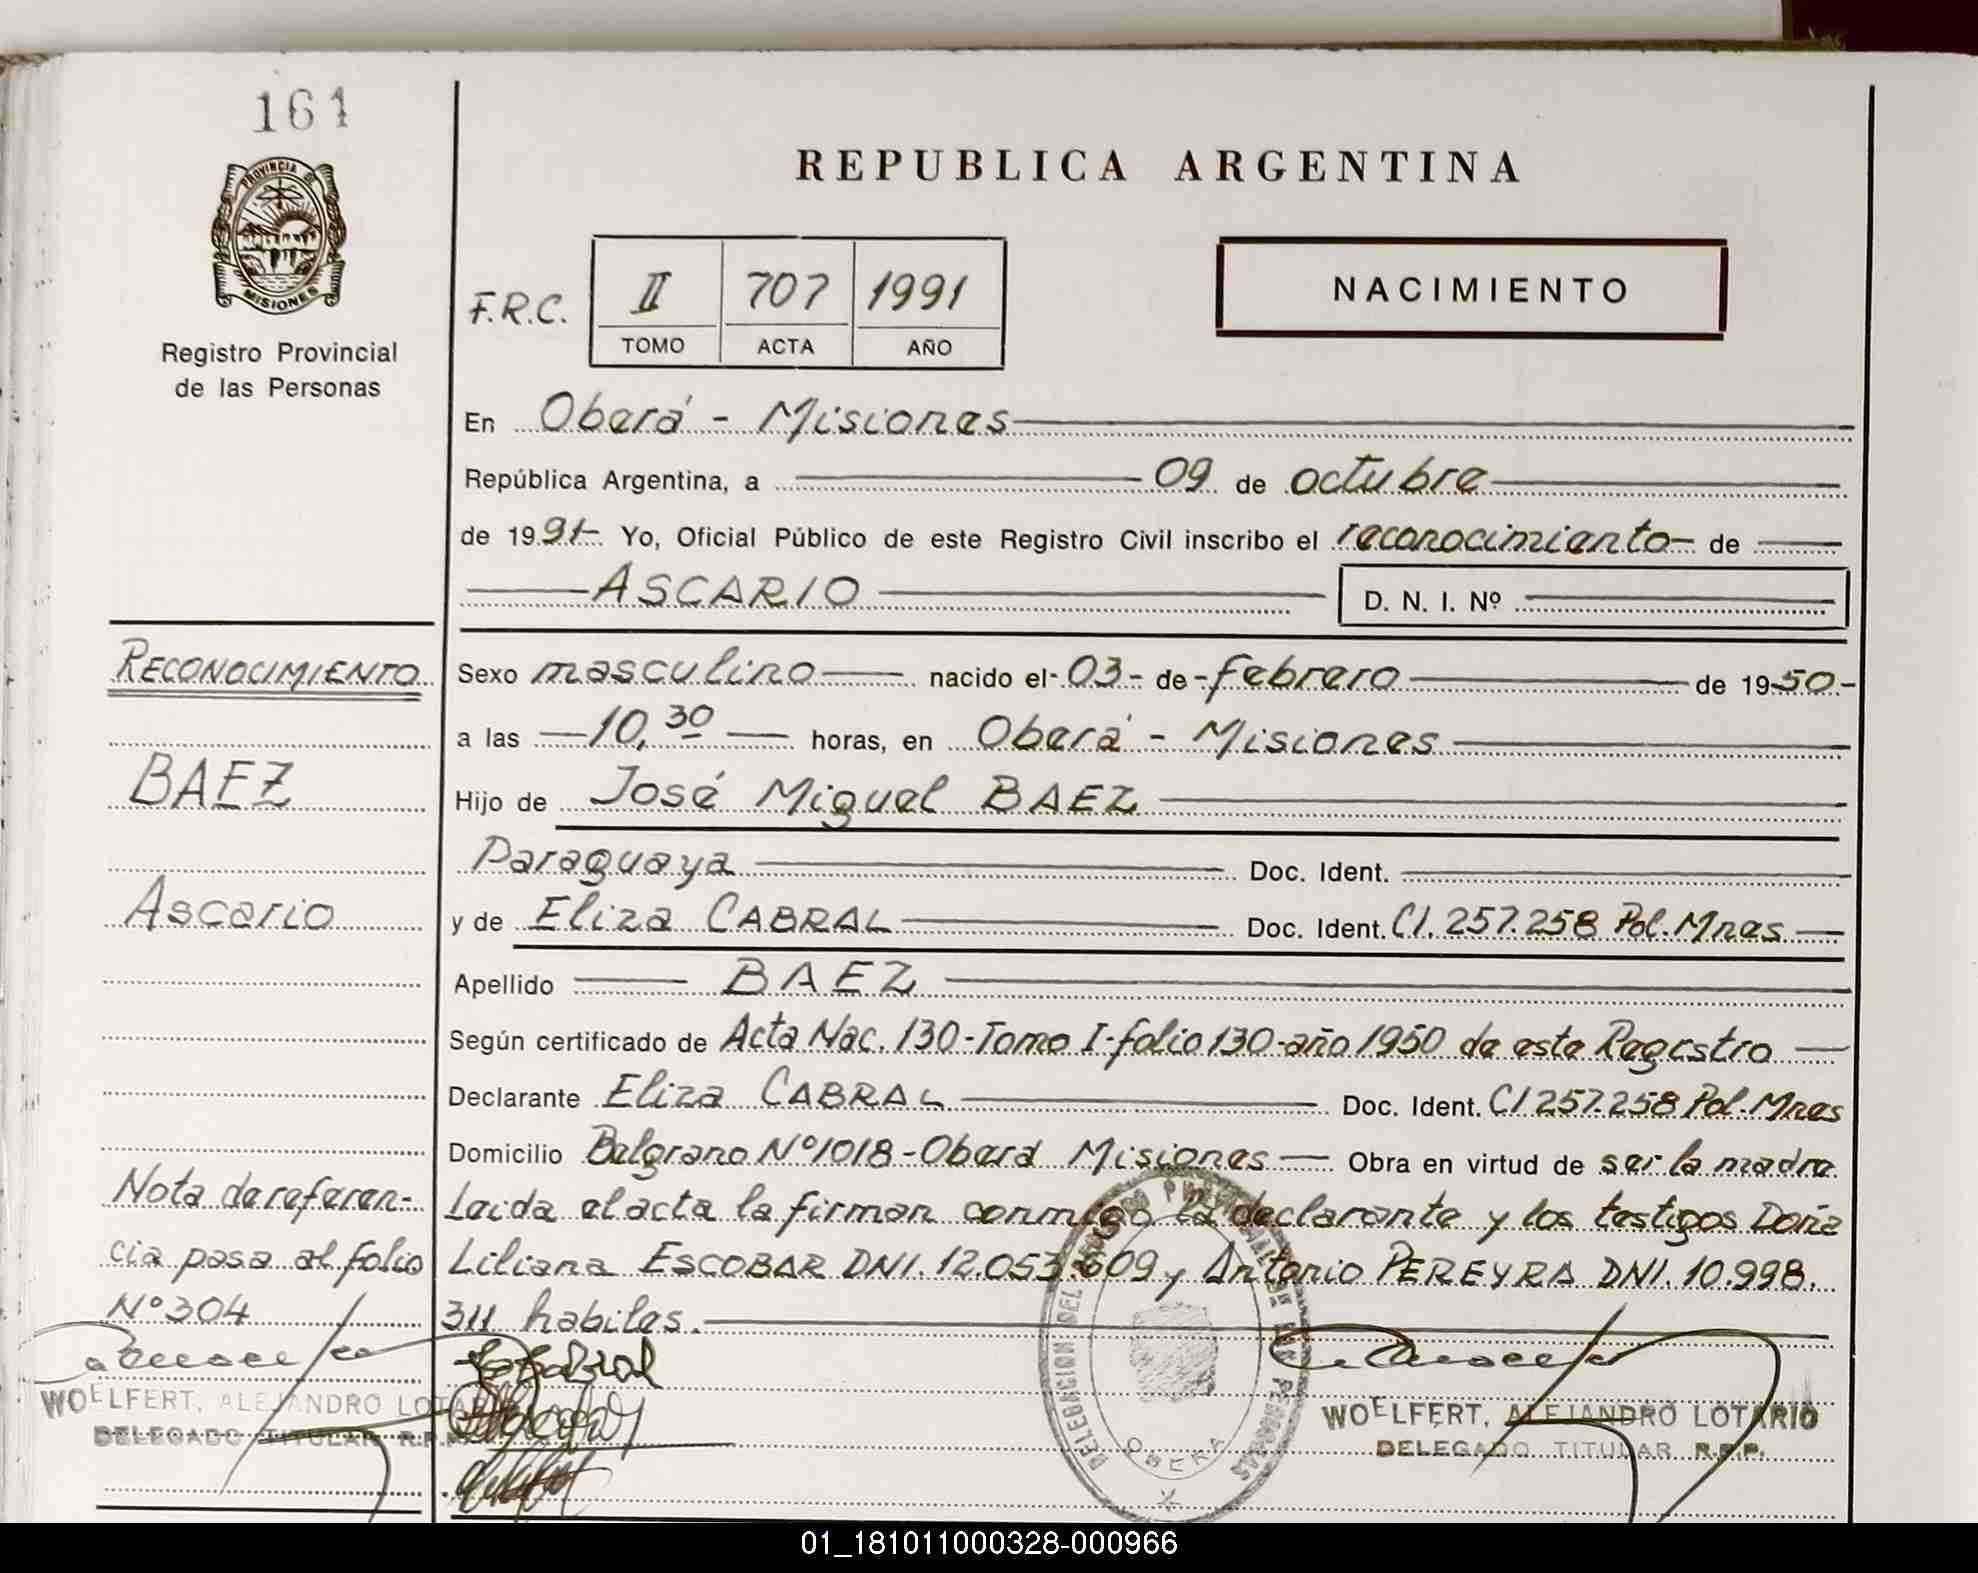 161
PROVINCIA DE
MISIONES
Registro Provincial
de las Personas
REPUBLICA ARGENTINA
F.R.C. II 707 1991
TOMO ACTA AÑO
NACIMIENTO
En Oberá - Misiones
República Argentina, a 09 de octubre
de 1991- Yo, Oficial Público de este Registro Civil inscribo el reconocimiento de
ASCARIO D. N. I. Nº
Sexo masculino nacido el - 03 - de - febrero de 1950.-
a las 10,30 horas, en Oberá - Misiones
Hijo de José Miguel BAEZ
Paraguaya Doc. Ident.
y de Eliza CABRAL Doc. Ident. CI. 257.258 Pol. Mnes
Apellido BAEZ
Según certificado de Acta Nac. 130-Tomo I-folio 130-año 1950 de este Registro
Declarante Eliza CABRAL Doc. Ident. CI 257.258 Pol. Mnes
Domicilio Belgrano Nº 1018 - Oberá Misiones Obra en virtud de ser la madre
Leida el acta la firman conmigo la declarante y los testigos Doña
Liliana ESCOBAR DNI. 12.053.609 y Antonio PEREYRA DNI. 10.998.
311 habiles.
RECONOCIMIENTO
BAEZ
Ascario
Nota de referen-
cia pasa al folio
Nº 304
WOELFERT, ALEJANDRO LOTARIO
DELEGADO TITULAR R.P.P.
Cabral
DELEGACION DEL REGISTRO PROVINCIAL DE LAS PERSONAS
OBERA
WOELFERT, ALEJANDRO LOTARIO
DELEGADO TITULAR R.P.P.
01_181011000328-000966